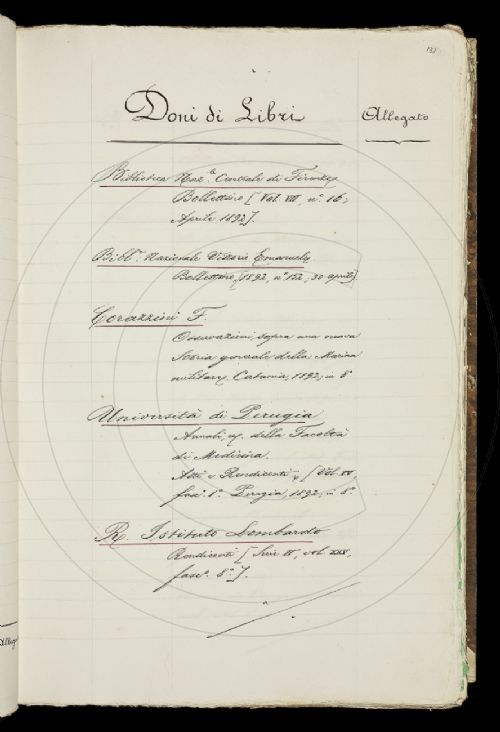 138
Doni di Libri
Allegato
Biblioteca Naz.le Centrale di Firenze
Bollettino [Vol. VII, n.° 16,
Aprile 1892].
Bibl. Nazionale Vittorio Emanuele
Bollettino, [1892, n.° 152, 30 aprile]
Corazzini F.
Osservazioni sopra una nuova
Storia generale della Marina
militare, Catania, 1892, in 8°
Università di Perugia
Annali, della Facoltà
di Medicina.
Atti e Rendiconti [Vol. IV,
fasc. 1.° Perugia, 1892, in 8.°
R. Istituto Lombardo
Rendiconti [Serie II, vol. XXV,
fasc. 8.°].
Allega